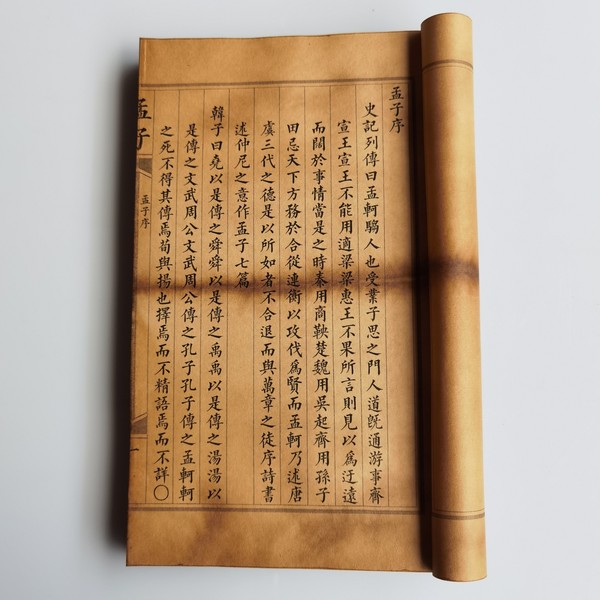 孟子序
史記列傳曰孟軻騶人也受業子思之門人道既通游事齊
宣王宣王不能用適梁梁惠王不果所言則見以為迂遠
而闊於事情當是之時秦用商鞅楚魏用吳起齊用孫子
田忌天下方務於合從連衡以攻伐為賢而孟軻乃述唐
虞三代之德是以所如者不合退而與萬章之徒序詩書
述仲尼之意作孟子七篇
韓子曰堯以是傳之舜舜以是傳之禹禹以是傳之湯湯以
是傳之文武周公文武周公傳之孔子孔子傳之孟軻軻
之死不得其傳焉荀與揚也擇焉而不精語焉而不詳○
孟子
孟子序
一